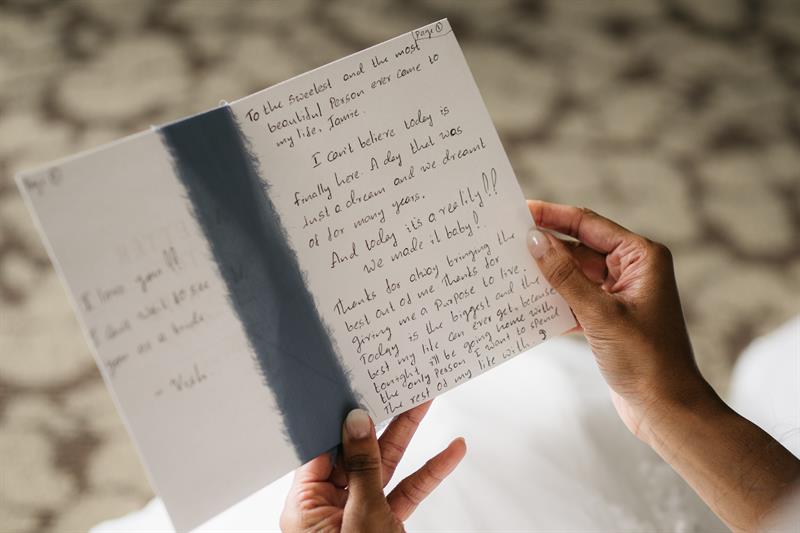 Page ①
To the sweetest and the most
beautiful Person ever come to
my life, Jamie.
I can't believe today is
finally here. A day that was
Just a dream and we dreamt
of for many years.
And today it's a reality!!
We made it baby!.
Thanks for alway bringing the
best out of me. Thanks for
giving me a Purpose to live.
Today is the biggest and the
best my life can ever get, because
tonight i'll be going home with
the only Person I want to spend
the rest of my life with.
Page
I love you!!
I can't wait to see
you as a bride.